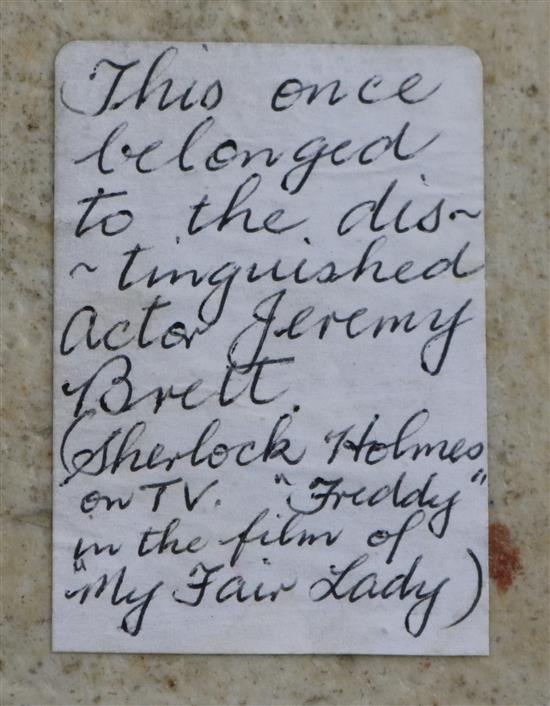 This once
belonged
to the dis~
~tinguished
actor Jeremy
Brett.
(Sherlock Holmes
on TV. "Freddy"
in the film of
"My Fair Lady)